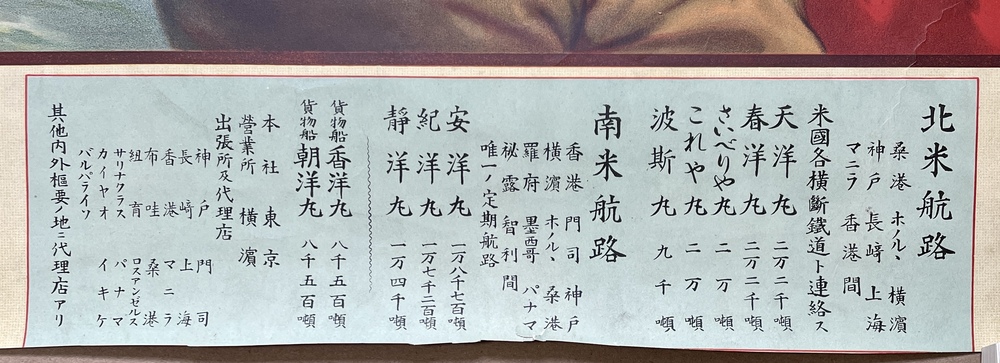 北米航路
桑港 ホノルヽ 横濱
神戸 長崎 上海
マニラ 香港 間
米國各橫斷鐵道ト連絡ス
天洋丸 二万二千噸
春洋丸 二万二千噸
さいべりや丸 二万噸
これや丸 二万噸
波斯丸 九千噸
南米航路
香港 門司 神戸
横濱 ホノルヽ 桑港
羅府 墨西哥 パナマ
祕露 智利 間
唯一ノ定期航路
安洋丸 一万八千七百噸
紀洋丸 一万七千二百噸
靜洋丸 一万四千噸
貨物船 香洋丸 八千五百噸
貨物船 朝洋丸 八千五百噸
本社 東京
營業所 横濱
出張所及代理店
神戸 門司
長崎 上海
香港 マニラ
布哇 桑港
紐育 ロスアンゼルス
サリナクラス パナマ
カイヤオ イキケ
バルパライソ
其他内外樞要ノ地ニ代理店アリ